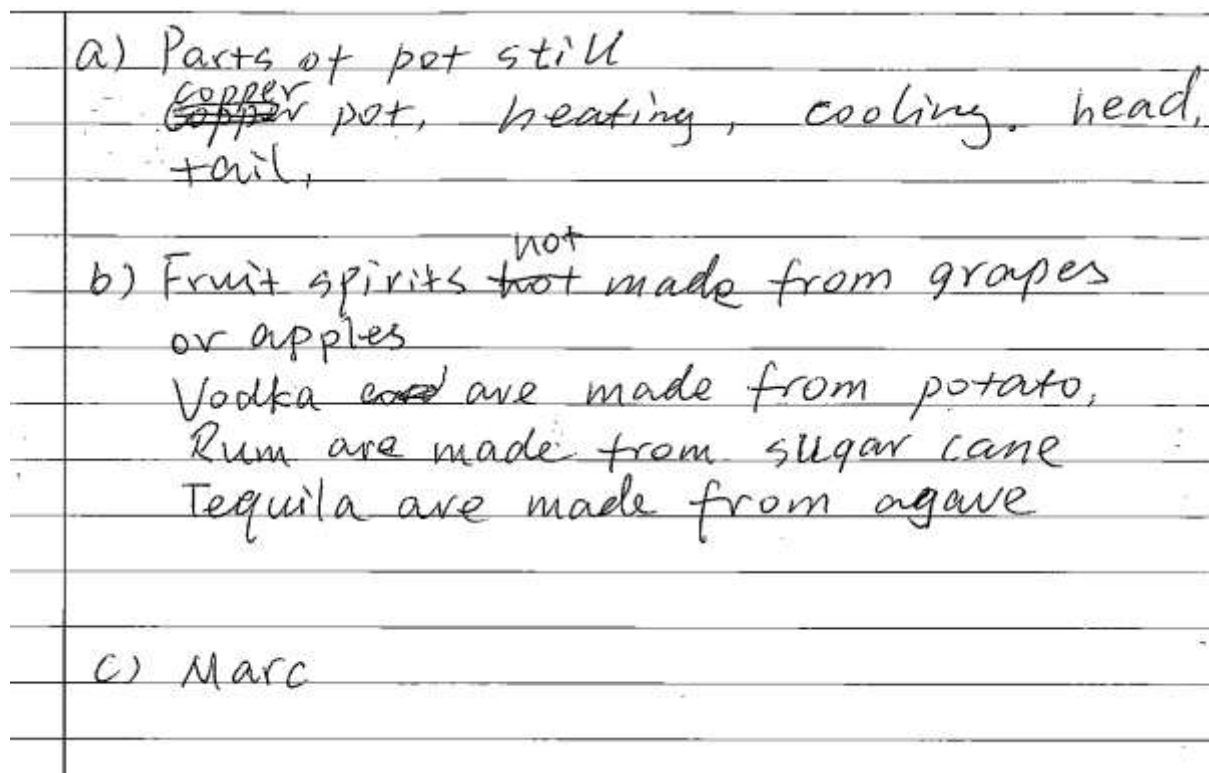 a) Parts of pot still
copper pot, heating, cooling, head,
tail,
b) Fruit spirits not made from grapes
or apples
Vodka are made from potato,
Rum are made from sugar cane
Tequila are made from agave
c) Marc